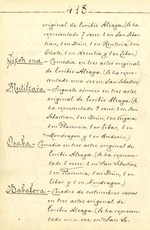 418
original de Toribio Alzaga. (se ha
representado 7 veces: 1 en San Sebas-
tian, 1 en Irún, 1 en Rentería, 1 en
Oñate, 1 en Hernani y 1 en Eibar.)
- Comedia en tres actos original
de Toribio Alzaga. (se ha repre-
sentado una vez en San Sebastian)
Mutilzarra - Juguete cómico en tres actos
original de Toribio Alzaga. (se ha
representado veces: en San
Sebastian, 1 en Irún, 1 en Vergara,
1 en Plasencia, 1 en Eibar, 1 en
Mondragon y 1 en Andoain.)
Osaba - Comedia en tres actos original de
Toribio Alzaga. (se ha repre-
sentado 5 veces: 1 en San Sebastian,
1 en Plasencia, 1 en Irún, 1 en
Eibar y 1 en Mondragon.)
- Cuadro de costumbres vascas
en tres actos original de
Toribio Alzaga. (se ha represen-
tado una vez en San Se-